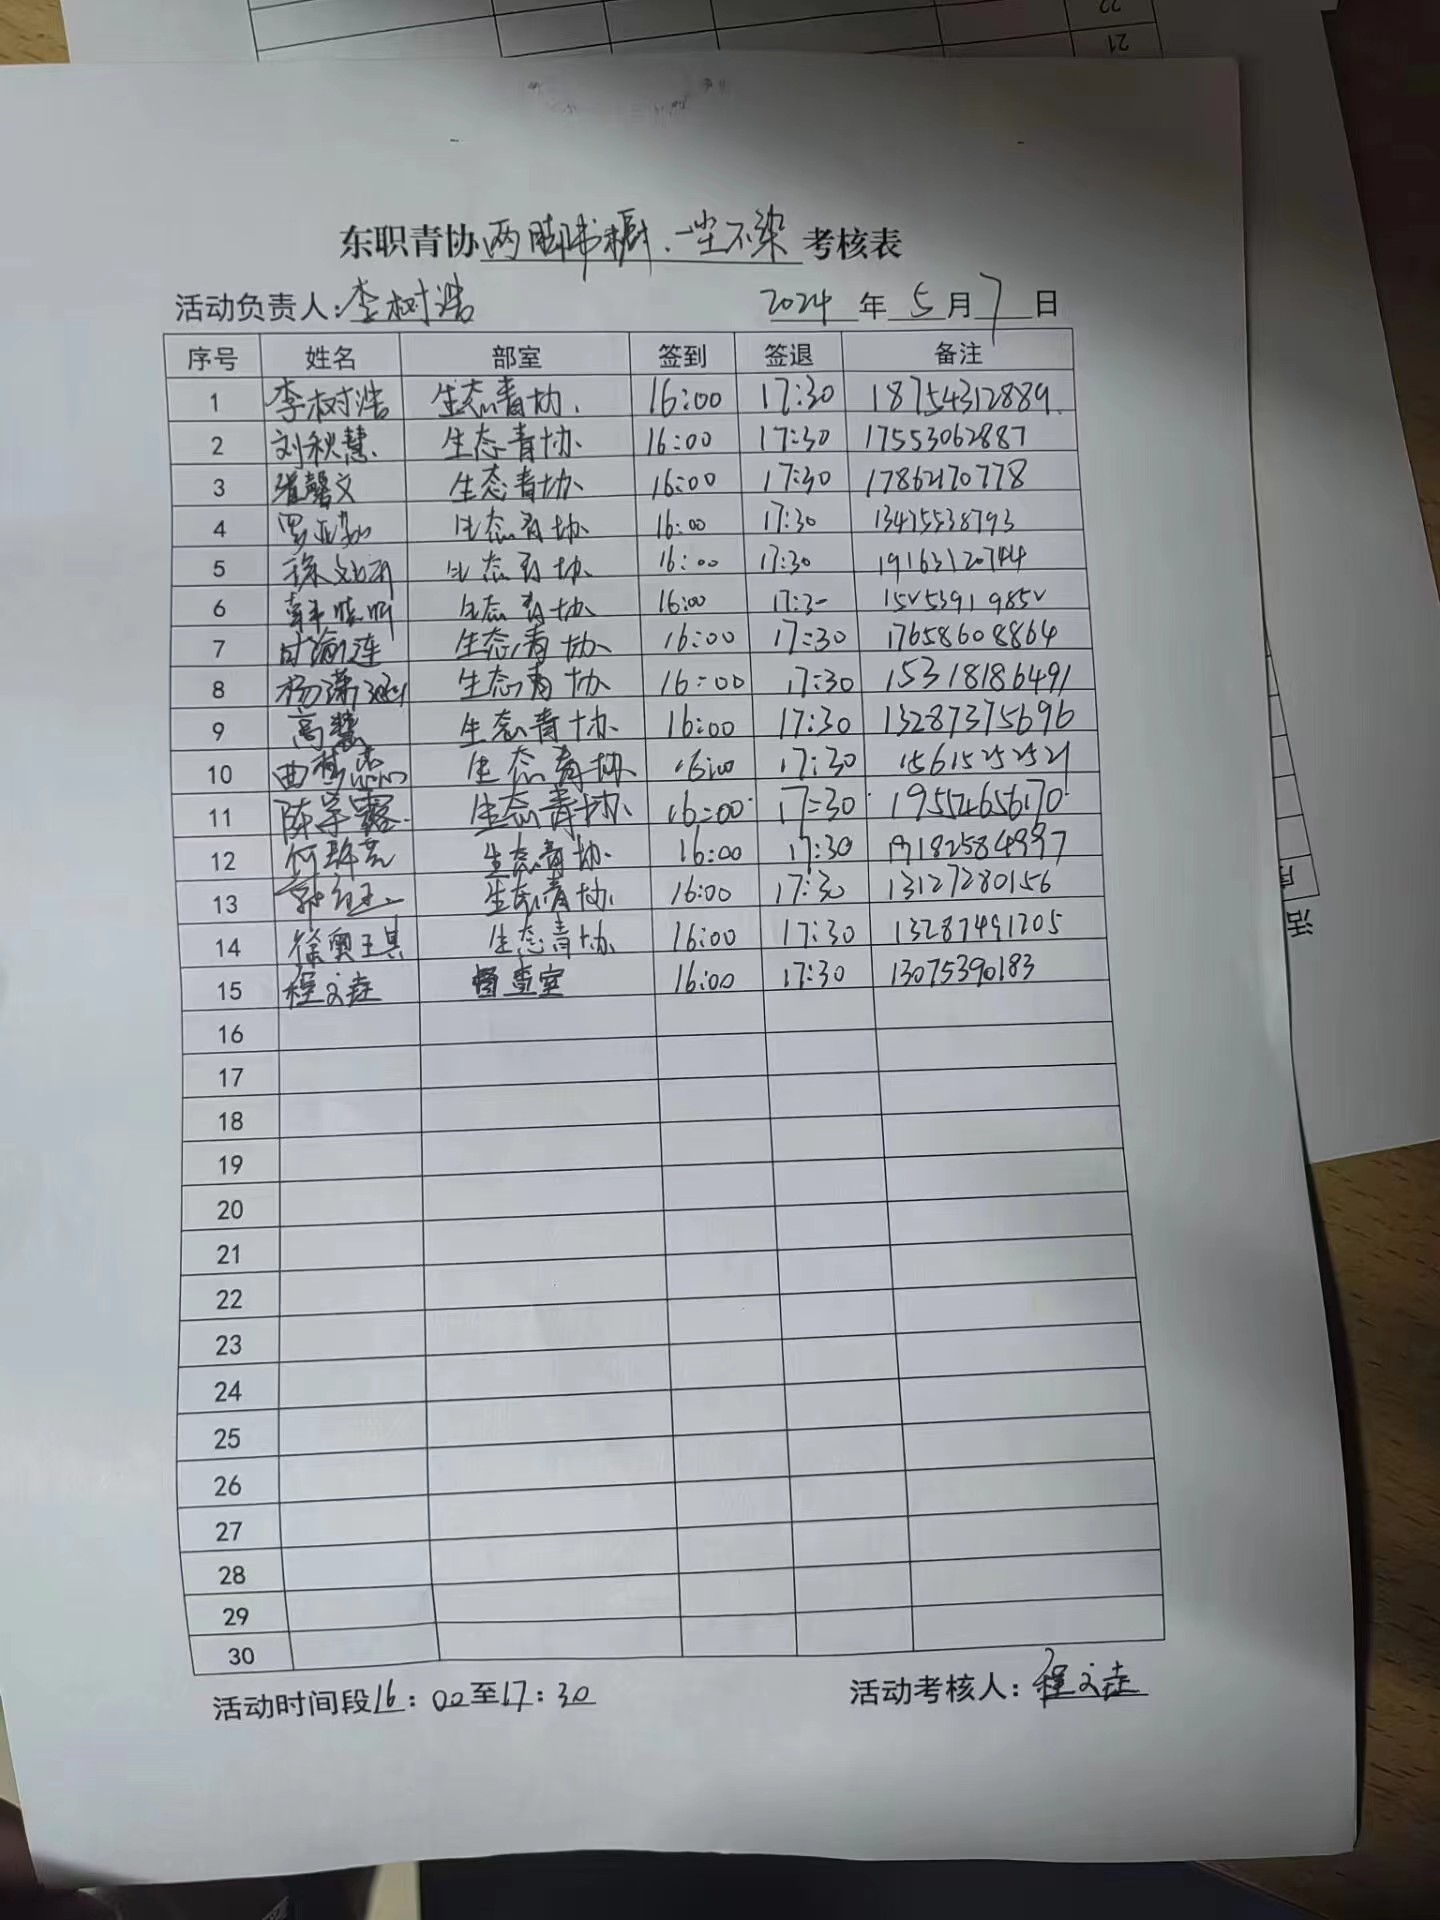 22
21
东职青协两脚书橱、一尘不染考核表
活动负责人:李树浩 2024年5月7日
序号 姓名 部室 签到 签退 备注
1 李树浩 生态青协 16:00 17:30 18754312889
2 刘秋慧 生态青协 16:00 17:30 17553062887
3 馨文 生态青协 16:00 17:30 17862170778
4 罗亚 生态青协 16:00 17:30 13475538793
5 生态青协 16:00 17:30 19163120744
6 韩晓昕 生态青协 16:00 17:30
7 时渝连 生态青协 16:00 17:30 17658608864
8 杨潇涵 生态青协 16:00 17:30 15318186491
9 高慧 生态青协 16:00 17:30 13287375696
10 曲梦 生态青协 16:00 17:30 15615252521
11 陈宇露 生态青协 16:00 17:30 19554656170
12 何 生态青协 16:00 17:30 19182584997
13 郭钰玉 生态青协 16:00 17:30 13127280156
14 徐奥琪 生态青协 16:00 17:30 13287491205
15 程文 督查室 16:00 17:30 13075390183
16
17
18
19
20
21
22
23
24
25
26
27
28
29
30
活动时间段16:00至17:30 活动考核人:程文
序
活